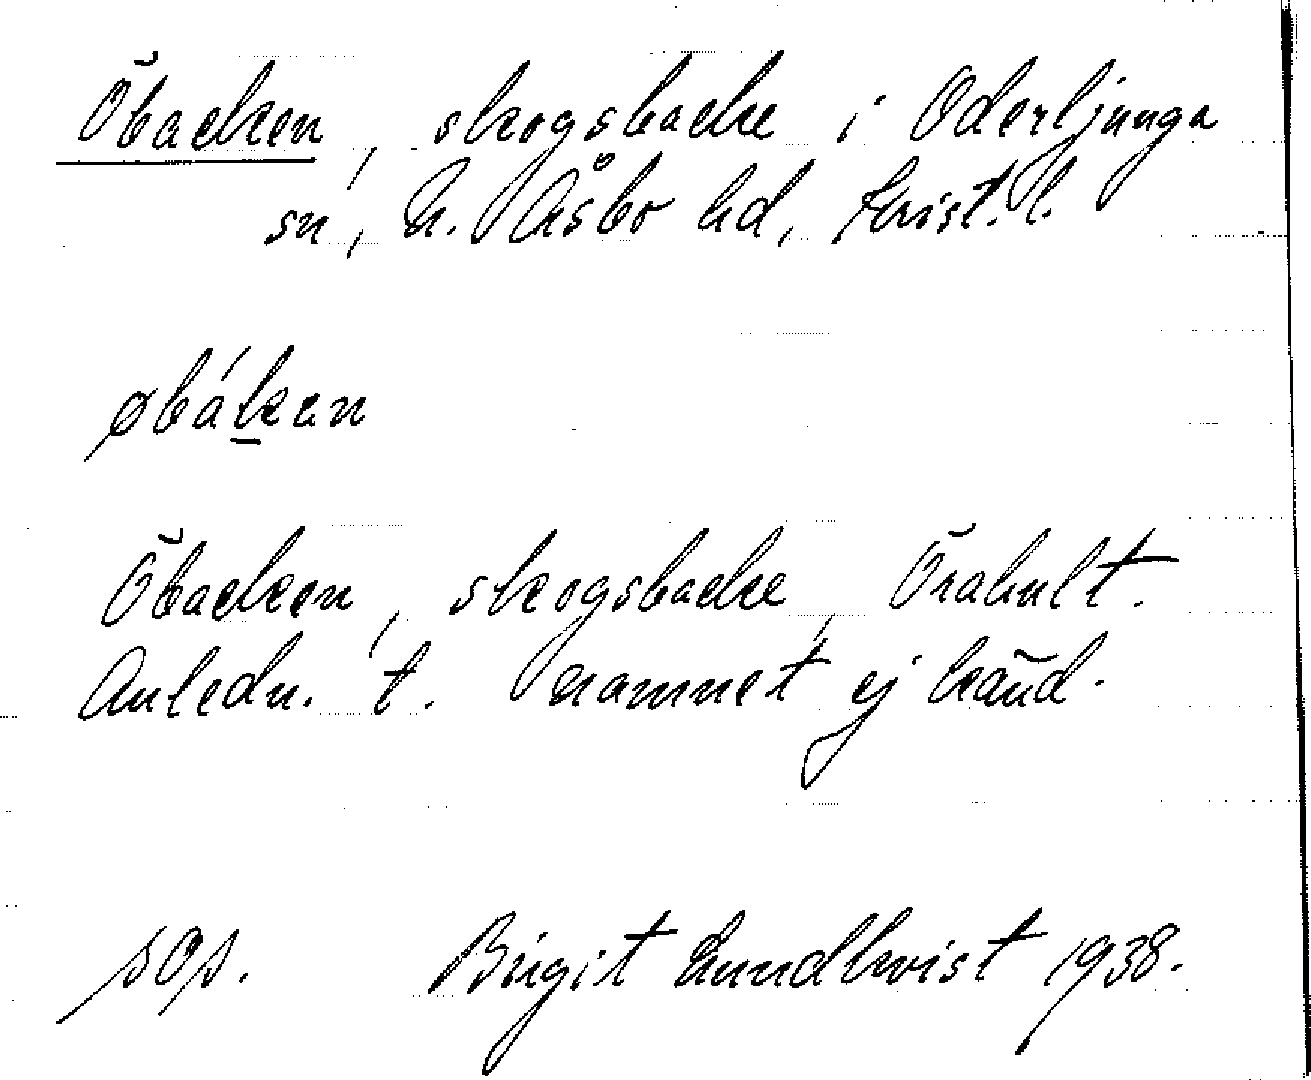 Öbacken, skogsbacke i Oderljunga
sn, N. Åsbo hd, Krist. l.
øbákan
Öbacken, skogsbacke, Örahult.
Anledn. t. namnet ej känd.
sOs. Birgit Lundkvist 1938.